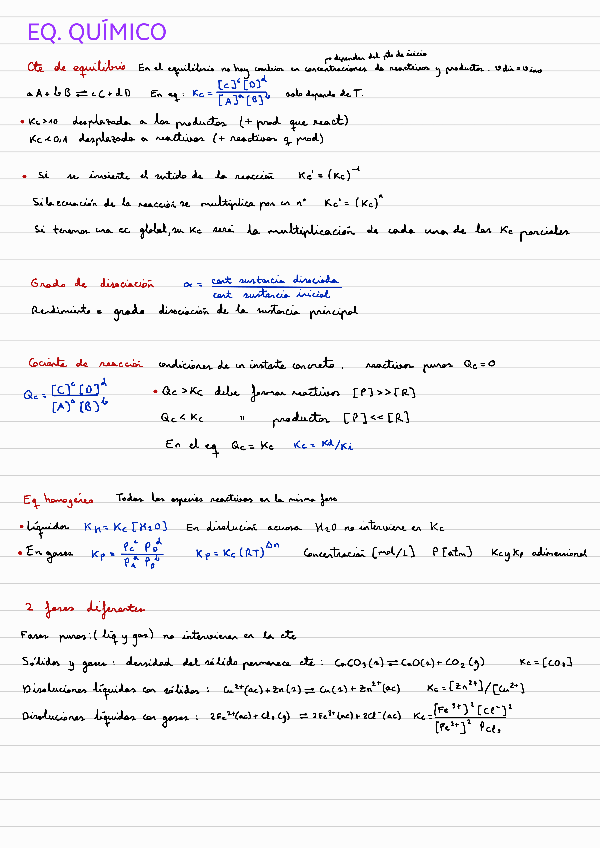 EQ. QUÍMICO
no dependen del pto de inicio
Cte de equilibrio En el equilibrio no hay cambios en concentraciones de reactivos y productos. vdir = vinv
aA + bB ⇌ cC + dD En eq: Kc = [C]^c [D]^d / [A]^a [B]^b solo depende de T.
• Kc>10 desplazada a los productos (+ prod que react)
Kc<0,1 desplazado a reactivos (+ reactivos q prod)
• Si se invierte el sentido de la reacción Kc' = (Kc)^-1
Si la ecuación de la reacción se multiplica por un nº Kc' = (Kc)^n
Si tenemos una ec global, su Kc será la multiplicación de cada una de las Kc parciales
Grado de disociación α = cant sustancia disociada / cant sustancia inicial
Rendimiento o grado disociación de la sustancia principal
Cociente de reacción condiciones de un instante concreto. reactivos puros Qc = 0
Qc = [C]^c [D]^d / [A]^a [B]^b • Qc > Kc debe formar reactivos [P]>>[R]
Qc < Kc " productos [P]<<[R]
En el eq Qc = Kc Kc = Kd/Ki
Eq homogéneo Todas las especies reactivas en la misma fase
• Líquidos KH = Kc [H2O] En disolución acuosa H2O no interviene en Kc
• En gases Kp = Pc^c PD^d / PA^a PB^b Kp = Kc (RT)^Δn Concentración [mol/L] P[atm] Kc y Kp adimensional
2 fases diferentes
Fases puras: (líq y gas) no intervienen en la cte
Sólidos y gases: densidad del sólido permanece cte: CaCO3(s) ⇌ CaO(s) + CO2(g) Kc = [CO2]
Disoluciones líquidas con sólidos: Cu2+(ac) + Zn(s) ⇌ Cu(s) + Zn2+(ac) Kc = [Zn2+]/[Cu2+]
Disoluciones líquidas con gases: 2Fe2+(ac) + Cl2(g) ⇌ 2Fe3+(ac) + 2Cl-(ac) Kc = [Fe3+]^2 [Cl-]^2 / [Fe2+]^2 PCl2